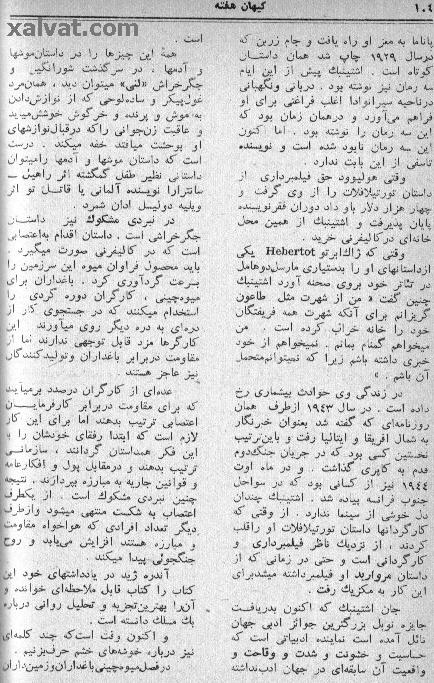 xalvat.com
۱۰۴
کیهان هفته
پاناما به مغز او راه یافت و جام زرین که
درسال ۱۹۲۹ چاپ شد همان داستان
کوتاه است . اشتینبك پیش از این ایام
سه رمان نیز نوشته بود . دربانی ونگهبانی
درناحیه سیرانوادا اغلب فراغتی برای او
فراهم می‌آورد و درهمان زمان بود که
این سه رمان را نوشته بود . اما اکنون
این سه رمان نابود شده است و نویسنده
تاسفی از این بابت ندارد .
وقتی هولیوود حق فیلمبرداری از
داستان تورتیلافلات را از وی گرفت و
چهار هزار دلار باو داد دوران فقرنویسنده
پایان پذیرفت و اشتینبك از همین محل
خانه‌ای درکالیفرنی خرید .
وقتی که ژاك ابرتو Hebertot یکی
ازداستانهای او را بدستیاری مارسل‌دوهامل
در تئاتر خود بروی صحنه آورد اشتینبك
چنین گفت « من از شهرت مثل طاعون
گریزانم برای آنکه شهرت همه فریفتگان
خود را خانه خراب کرده است . من
میخواهم گمنام بمانم . نمیخواهم از خود
خبری داشته باشم زیرا که نمیتوانم‌متحمل
آن باشم . »
در زندگی وی حوادث بیشماری رخ
داده است . در سال ۱۹۴۳ ازطرف همان
روزنامه‌ای که گفته شد بعنوان خبرنگار
به شمال افریقا و ایتالیا رفت و باین‌ترتیب
نخستین کسی بود که در جریان جنگ‌دوم
قدم به کاپری گذاشت . و در ماه اوت
۱۹۴۴ نیز از کسانی بود که در سواحل
جنوب فرانسه پیاده شد . اشتینبك چندان
دل خوشی از سینما ندارد . از وقتی که
کارگردانها داستان تورتیلافلات او راقلب
کردند ، از نزدیك ناظر فیلمبرداری و
کارگردانی است و حتی در زمانی که از
داستان مروارید او فیلمبرداشته میشدبرای
این کار به مکزیك رفت .
جان اشتینبك که اکنون بدریافت
جایزه نوبل بزرگترین جوائز ادبی جهان
نائل آمده است نماینده ادبیاتی است که
حساسیت و خشونت و شدت و وقاحت و
واقعیت آن سابقه‌ای در جهان ادب‌نداشته
است .
همهٔ این چیزها را در داستان‌موشها
و آدمها ، در سرگذشت شورانگیز و
جگرخراش «لنی» میتوان دید ، همان‌مرد
غول‌پیکر و ساده‌لوحی که از نوازش‌دادن
به موش و پرنده و خرگوش خوشش‌میاید
و عاقبت زن‌جوانی راکه درقبال‌نوازشهای
او بوحشت میافتد خفه میکند . درست
است که داستان موشها و آدمها رامیتوان
داستانی نظیر طفل گمگشته اثر راهیل
سانزارا نویسنده آلمانی یا قاتل تو اثر
ویلیه دولیسل ادان شمرد .
در نبردی مشکوك نیز داستان
جگرخراشی است . داستان اقدام به‌اعتصابی
است که در کالیفرنی صورت میگیرد .
باید محصول فراوان میوه این سرزمین را
بسرعت گردآوری کرد . باغداران برای
میوه‌چینی ، کارگران دوره گردی را
استخدام میکنند که در جستجوی کار از
دره‌ای به دره دیگر روی میآورند این
کارگرها مزد قابل توجهی ندارند اما از
مقاومت دربرابر باغداران وتولیدکنندگان
نیز عاجز هستند .
عده‌ای از کارگران درصدد برمیایند
که برای مقاومت دربرابر کارفرمایان
اعتصابی ترتیب بدهند اما برای این کار
لازم است که ابتدا رفقای خودشان را با
این فکر همداستان گردانند ، سازمانی
ترتیب بدهند و درمقابل پول و افکارعامه
و قوانین جاریه به مبارزه بپردازند . نتیجه
چنین نبردی مشکوك است . از یکطرف
اعتصاب به شکست منتهی میشود وازطرف
دیگر تعداد افرادی که هواخواه مقاومت
و مبارزه هستند افزایش می‌یابد و روح
جنگجوئی پیدا میکنند
آندره ژید در یادداشتهای خود این
کتاب را کتاب قابل ملاحظه‌ای خوانده و
آن‌را بهترین‌تجزیه و تحلیل روانی درباره
یك مسلك دانسته است .
و اکنون وقت است‌که چند کلمه‌ای
نیز درباره خوشه‌های خشم حرف‌بزنیم .
درفصل‌میوه‌چینی‌باغداران‌وزمین‌داران